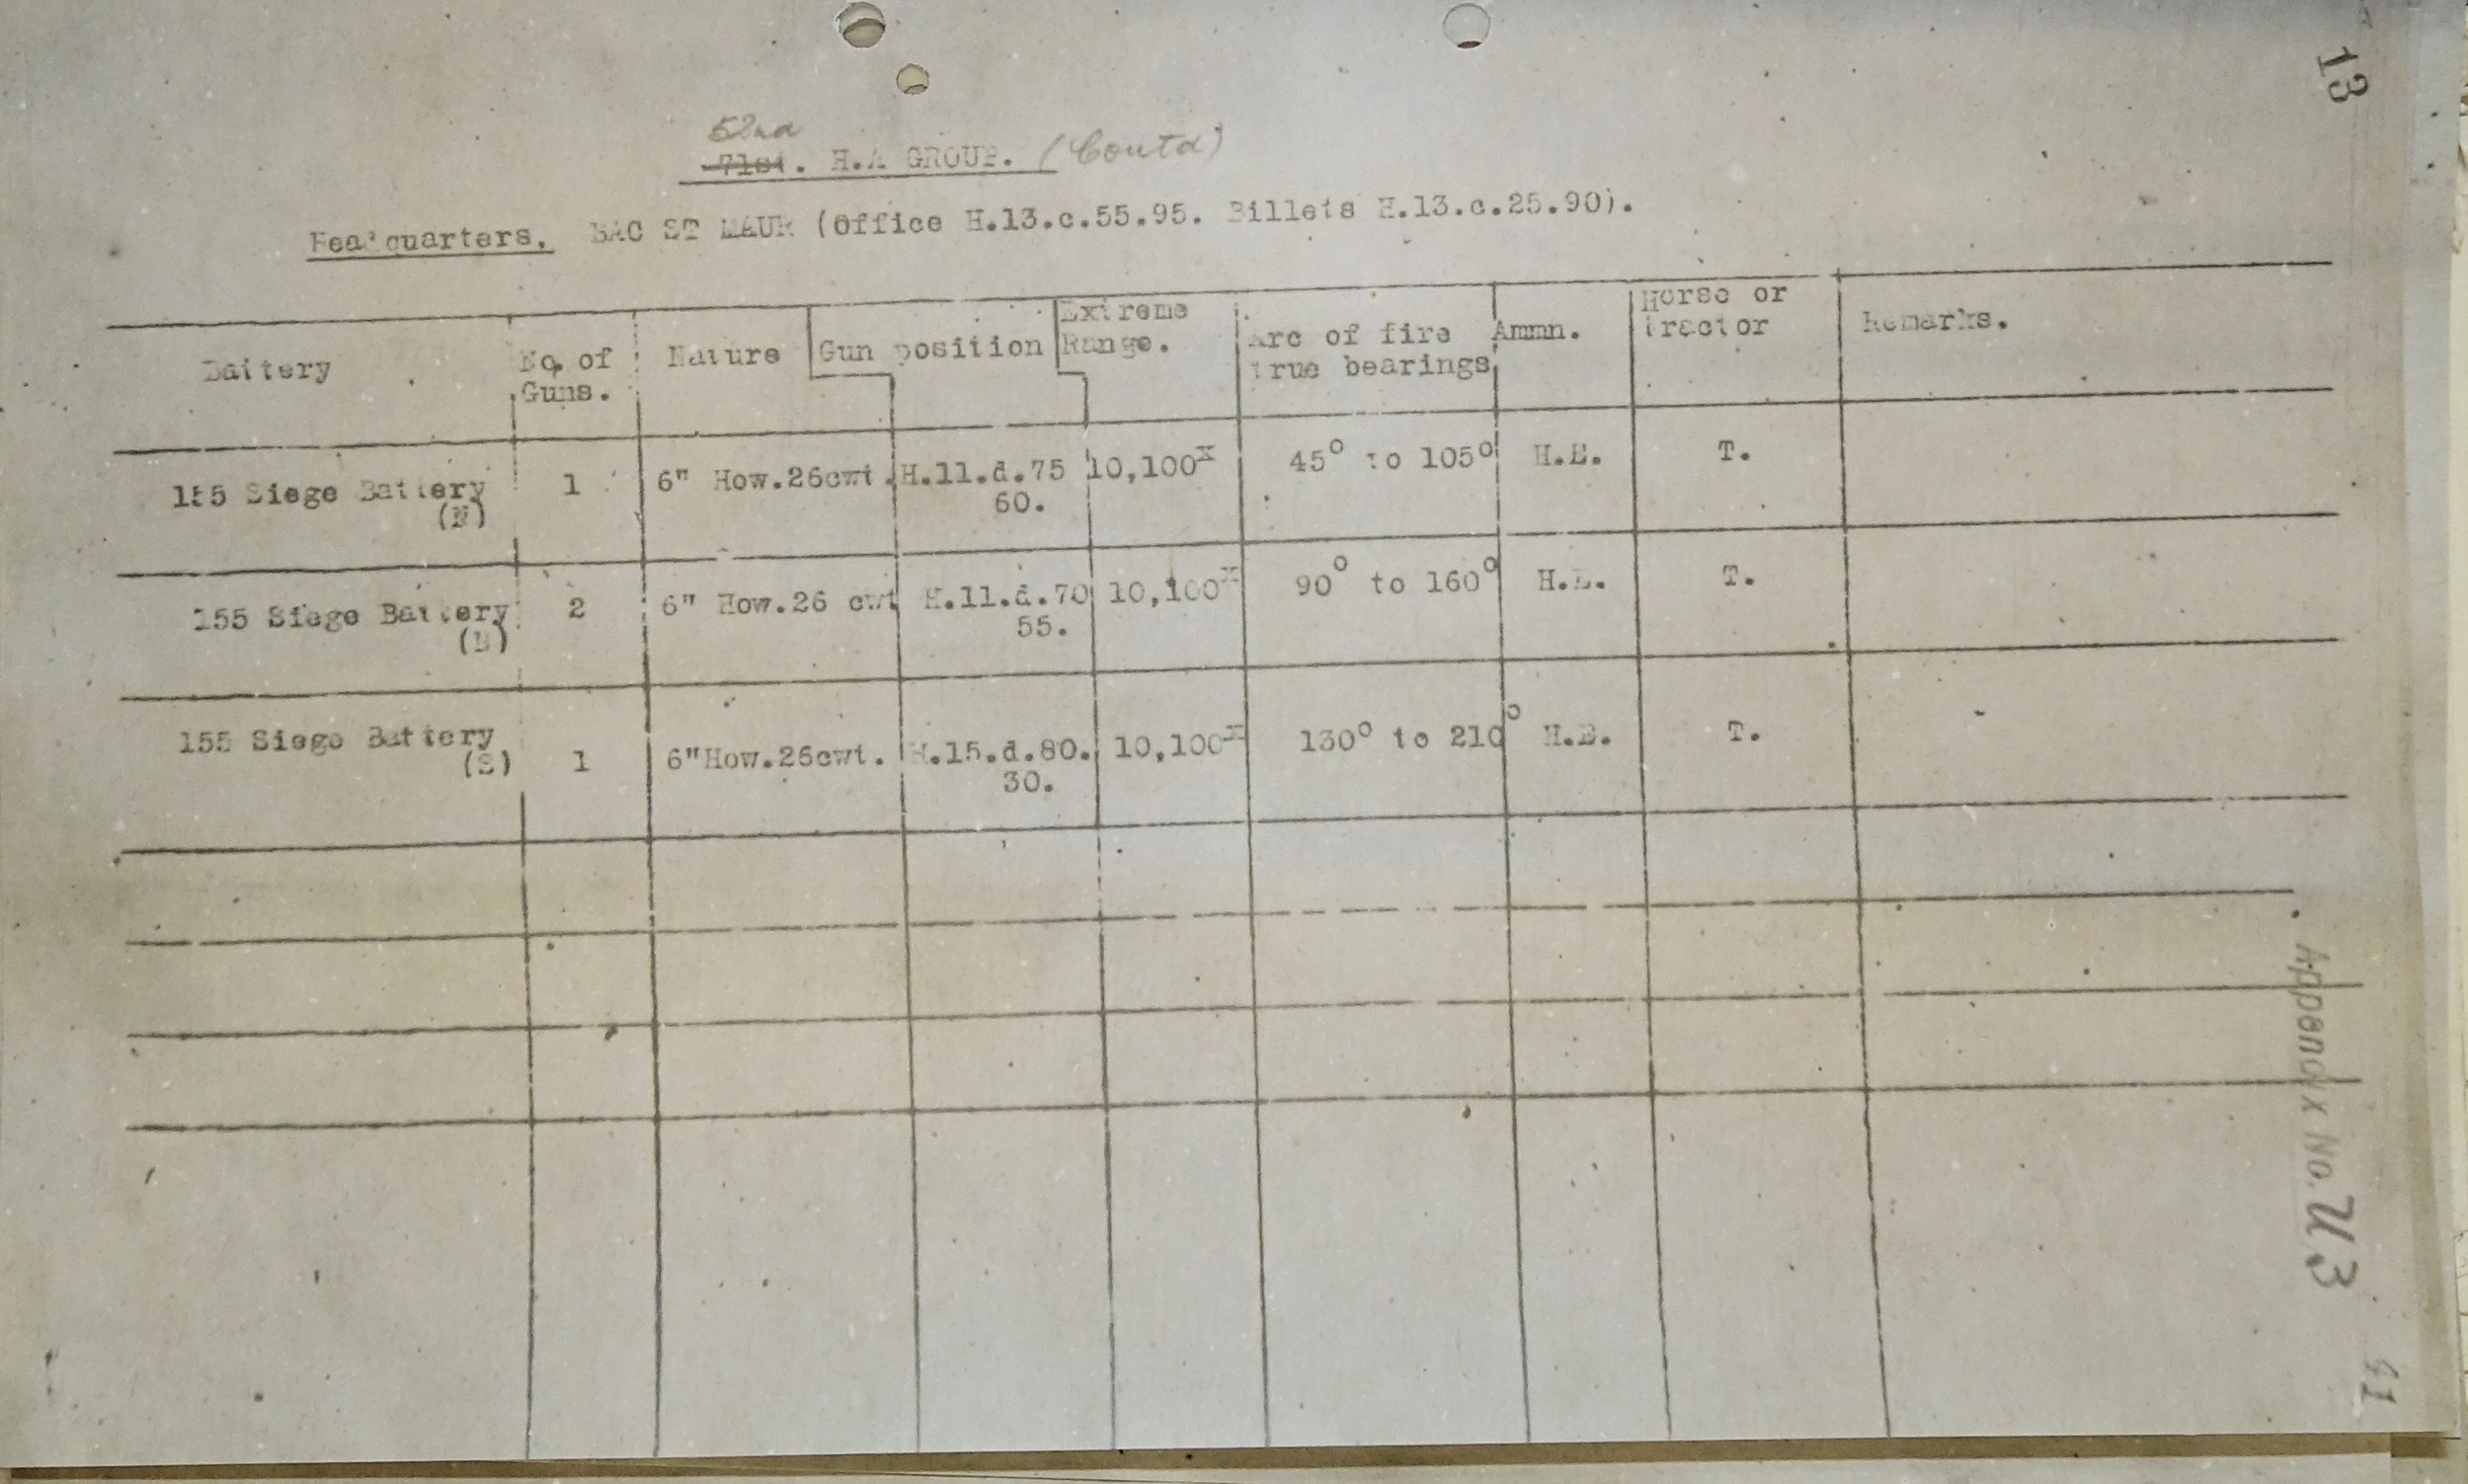 13
52nd
71st. H.A GROUP. (Contd)
Headquarters. BAC ST MAUR (Office H.13.c.55.95. Billets H.13.c.25.90).
Battery No. of Guns. Nature Gun position Extreme Range. Arc of fire true bearings Ammn. Horse or Tractor Remarks.
155 Siege Battery 1 6" How.26cwt. H.11.d.75 10,100x 45° to 105° H.E. T.
(N) 60.
155 Siege Battery 2 6" How.26 cwt H.11.d.70 10,100x 90° to 160° H.E. T.
55.
155 Siege Battery
(S) 1 6"How.26cwt. H.15.d.80. 10,100x 130° to 210° H.E. T.
30.
Appendix No. U 3